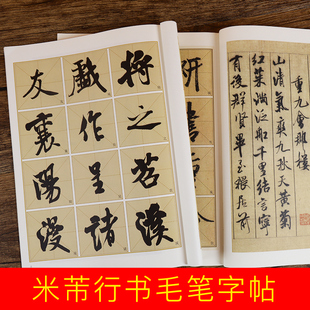 将之苕溪
戲作呈諸
友襄陽漫
重九會郡樓
山清氣爽九秋天黄菊
紅茱滿泛船千里結言寧
有後群賢畢至猥居前
米芾行书毛笔字帖